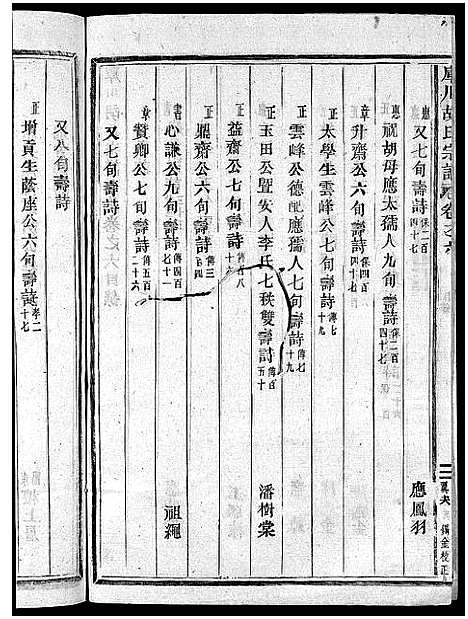 庫川胡氏宗譜卷之六
惠 又七旬壽詩 傳二百四十七
惠 祝胡母應太孺人九旬壽詩 傳二百四十七 應鳳羽
章 升齋公六旬壽詩 傳四百四十七
正 太學生雲峰公七旬壽詩 傳七十九
正 雲峰公德配應孺人七旬壽詩 傳七十九
正 玉田公暨安人李氏七秩雙壽詩 傳百五十 潘樹棠
正 益齋公七旬壽詩
正 鼎齋公六旬壽詩
書 心謙公九旬壽詩 傳四百七十一 祖繩
章 贊卿公七旬壽詩 傳五百二十六
又七旬壽詩
又八旬壽詩
正 增貢生蔭座公六旬壽誕 孝二十七